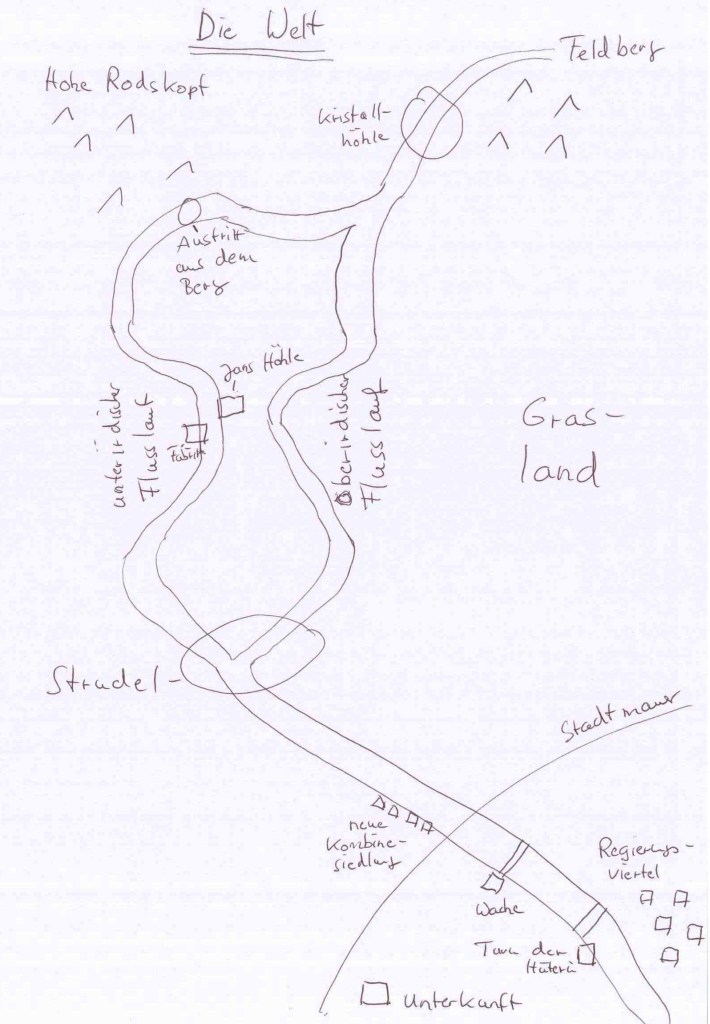 Die Welt
Feldberg
Hohe Rodskopf
Kristall-
höhle
Austritt
aus dem
Berg
Jans Höhle
unterirdischer
Flusslauf
Fabrik
Oberirdischer
Flusslauf
Gras-
land
Strudel
Stadtmauer
neue
Kombine-
siedlung
Regierungs-
viertel
Wache
Turm der
Hüterin
Unterkunft